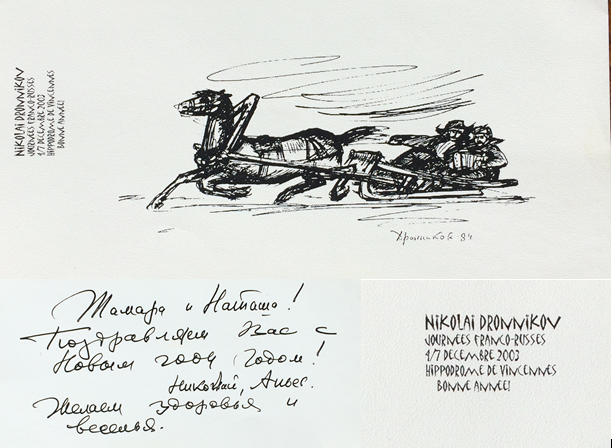 NIKOLAI DRONNIKOV
JOURNEES FRANCO-RUSSES
1/7 DECEMBRE 2003
HIPPODROME DE VINCENNES
BONNE ANNEE!
Дронников 84
Тамара и Наташа!
Поздравляем Вас с
Новым 2004 Годом!
Николай, Аньес.
Желаем здоровья и
веселья.
NIKOLAI DRONNIKOV
JOURNEES FRANCO-RUSSES
1/7 DECEMBRE 2003
HIPPODROME DE VINCENNES
BONNE ANNEE!